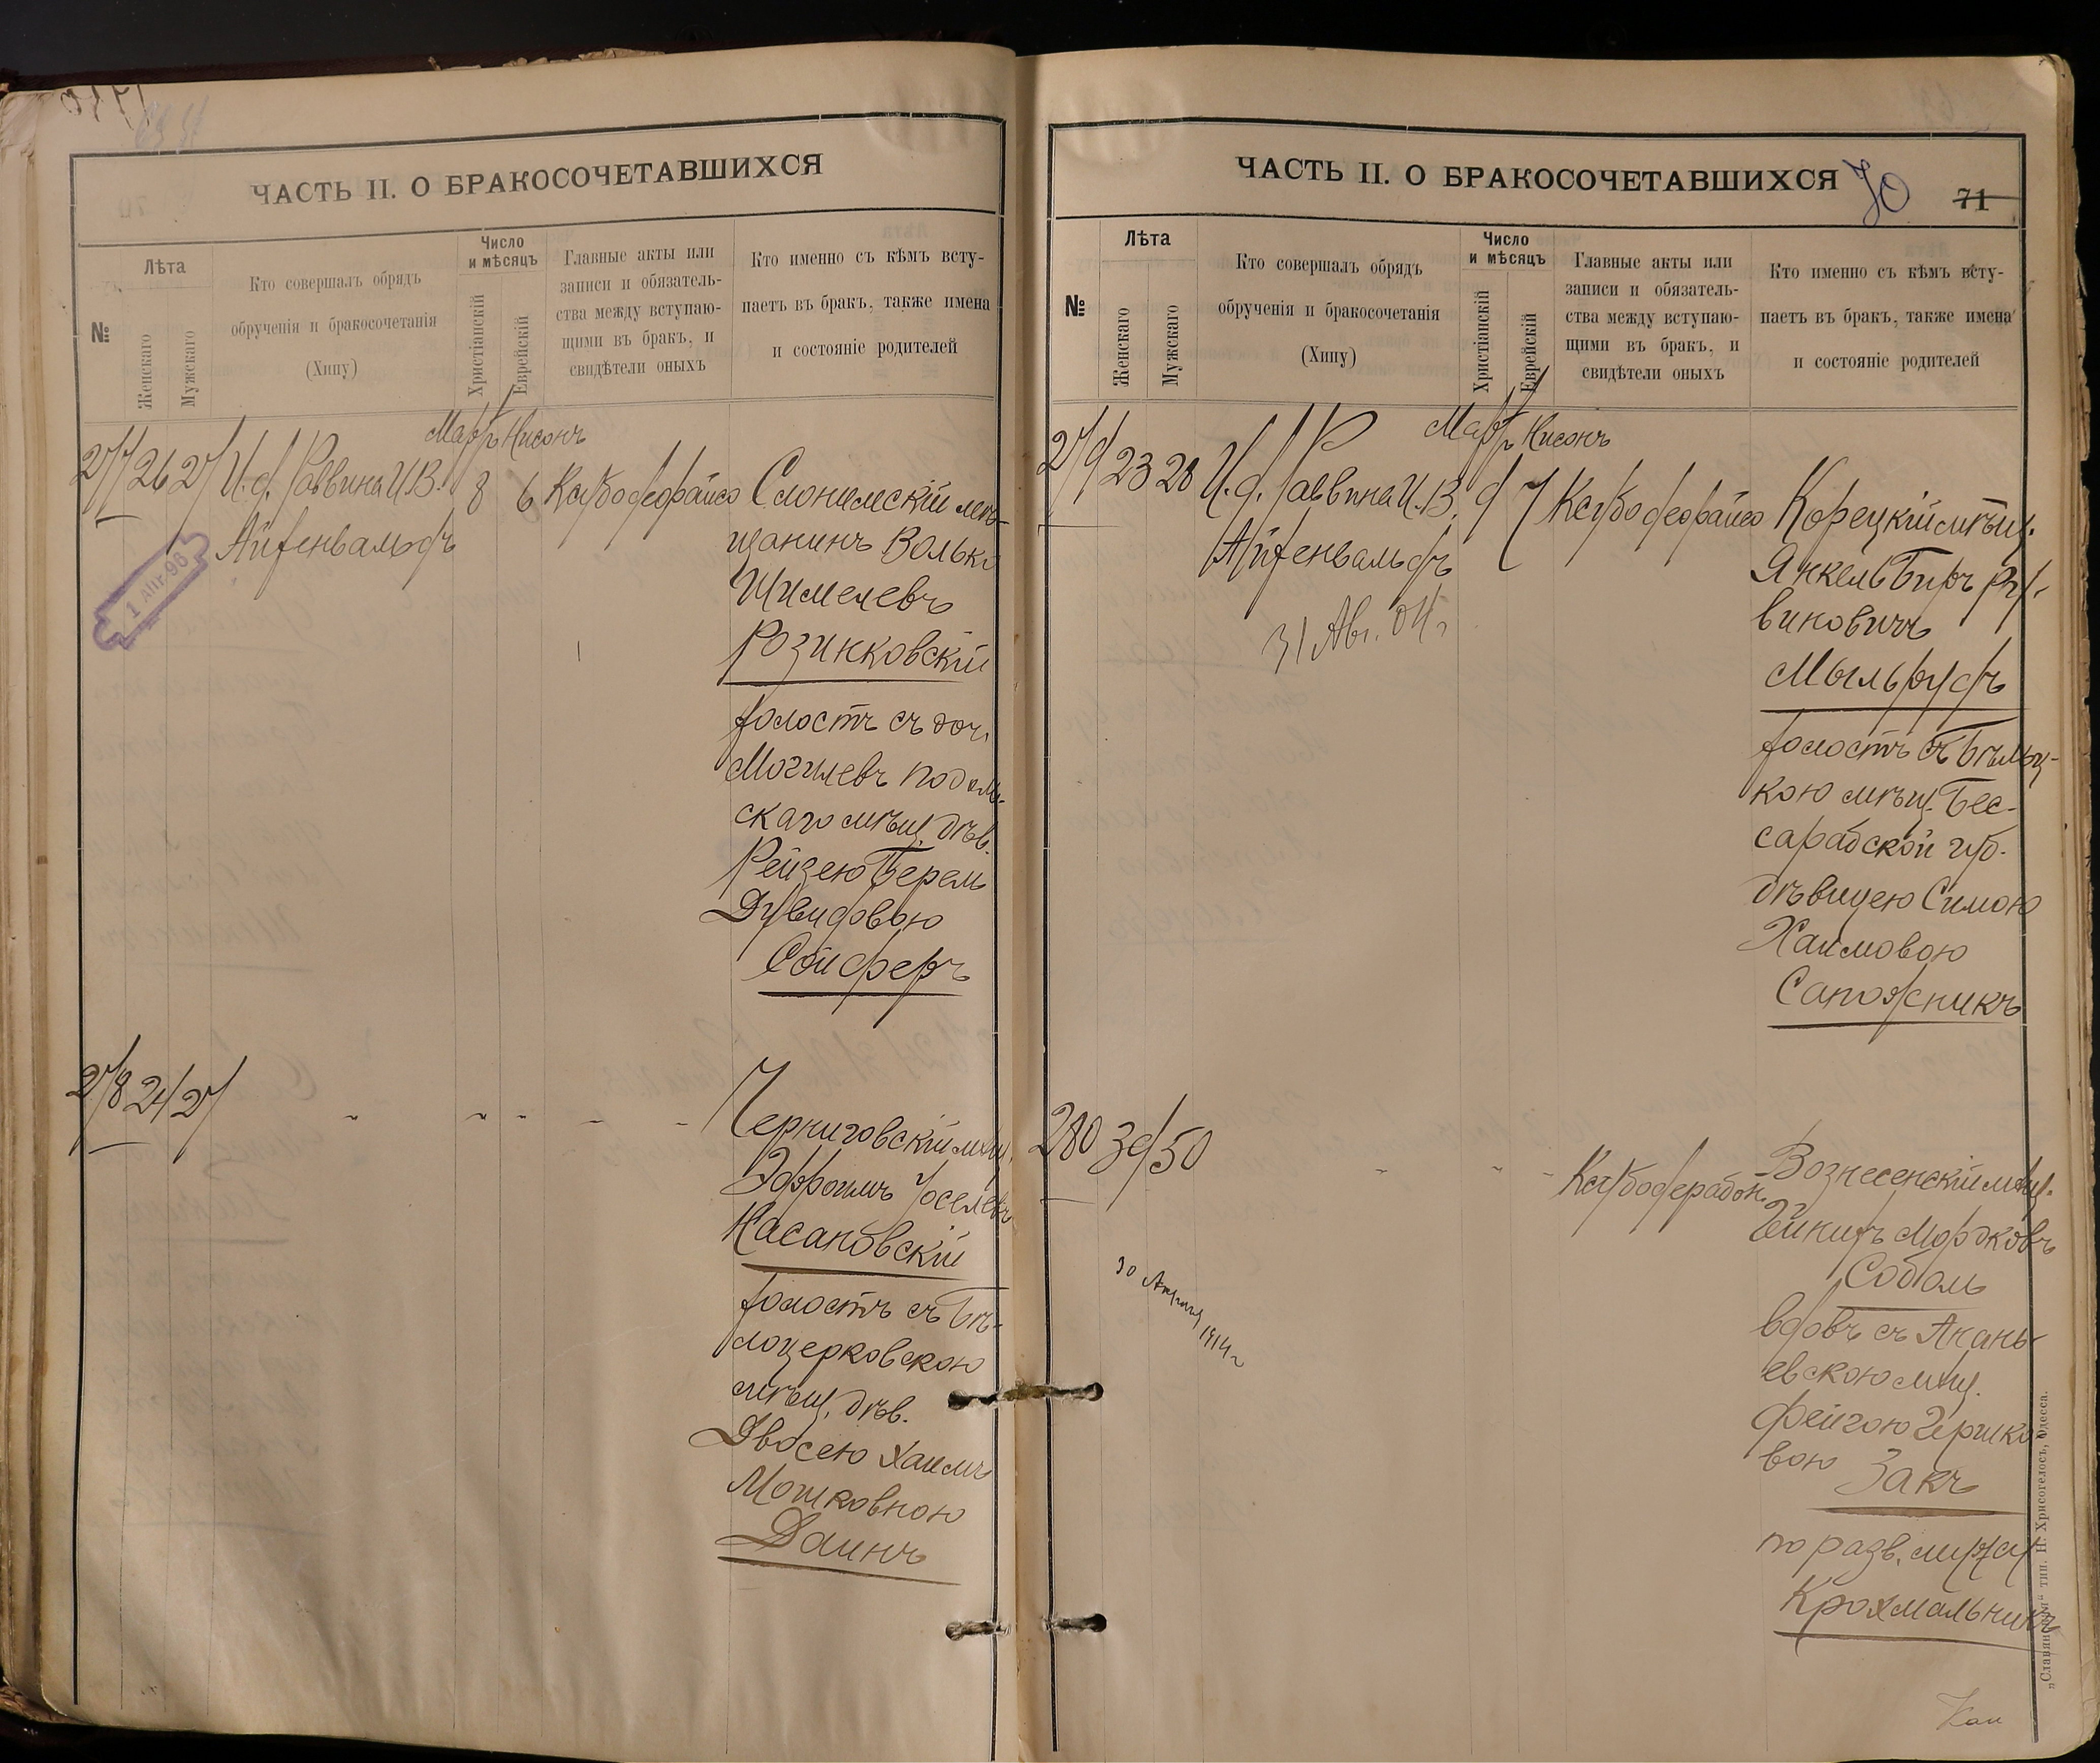 ЧАСТЬ II. О БРАКОСОЧЕТАВШИХСЯ
№
Лѣта
Женскаго
Мужскаго
Кто совершалъ обрядъ
обрученія и бракосочетанія
(Хипу)
Число
и мѣсяцъ
Христіанскій
Еврейскій
Главные акты или
записи и обязатель-
ства между вступаю-
щими въ бракъ, и
свидѣтели оныхъ
Кто именно съ кѣмъ всту-
паетъ въ бракъ, также имена
и состояніе родителей
Мартъ Нисонъ
277 26 27 И.д. Раввина И.В. 8 6
Айзенвальдъ
1 АПГ. 96
Слонимскій мѣ-
щанинъ Волько
Шимелевъ
Розинковскій
холостъ съ доч.
Могилевъ Подоль-
скаго мѣщ. дѣв.
Рейзею Берель
Дувидовою
Сойферъ
278 24 27
Черниговскій мѣщ.
Эфроимъ Іоселевъ
Касановскій
холостъ съ Бѣ-
лоцерковскою
мѣщ. дѣв.
Двосею Хаимъ
Мошковною
Даинъ
ЧАСТЬ II. О БРАКОСОЧЕТАВШИХСЯ
70
71
№
Лѣта
Женскаго
Мужскаго
Кто совершалъ обрядъ
обрученія и бракосочетанія
(Хипу)
Число
и мѣсяцъ
Христіанскій
Еврейскій
Главные акты или
записи и обязатель-
ства между вступаю-
щими въ бракъ, и
свидѣтели оныхъ
Кто именно съ кѣмъ всту-
паетъ въ бракъ, также имена
и состояніе родителей
Мартъ Нисонъ
279 23 28 И.д. Раввина И.В. 9 7
Айзенвальдъ
31 Авг. 04 г
Корецкій мѣщ.
Янкель Беръ Ру-
виновичъ
Мыльрудъ
холостъ съ Бѣльц-
кою мѣщ. Бес-
сарабской губ.
дѣвицею Симою
Хаимовою
Сапожникъ
280 39 50
30 Апрѣля 1914 г
Вознесенскій мѣщ.
Мордковъ
Соболь
вдовъ съ Анань-
евскою мѣщ.
Фейгою Гершко-
вою Закъ
по разв. мужу
Крохмальникъ
„Славянская“ тип. Н. Хрисогелосъ, Одесса.